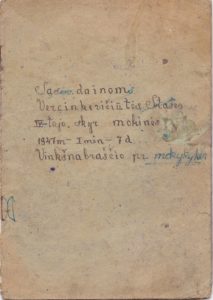 Są dainoms
Vercinkevičiūtės Stasės
IV-tojo. skyr mokinės
1947m- I mėn - 7 d.
Vinkšnabraščio pr. mokykla